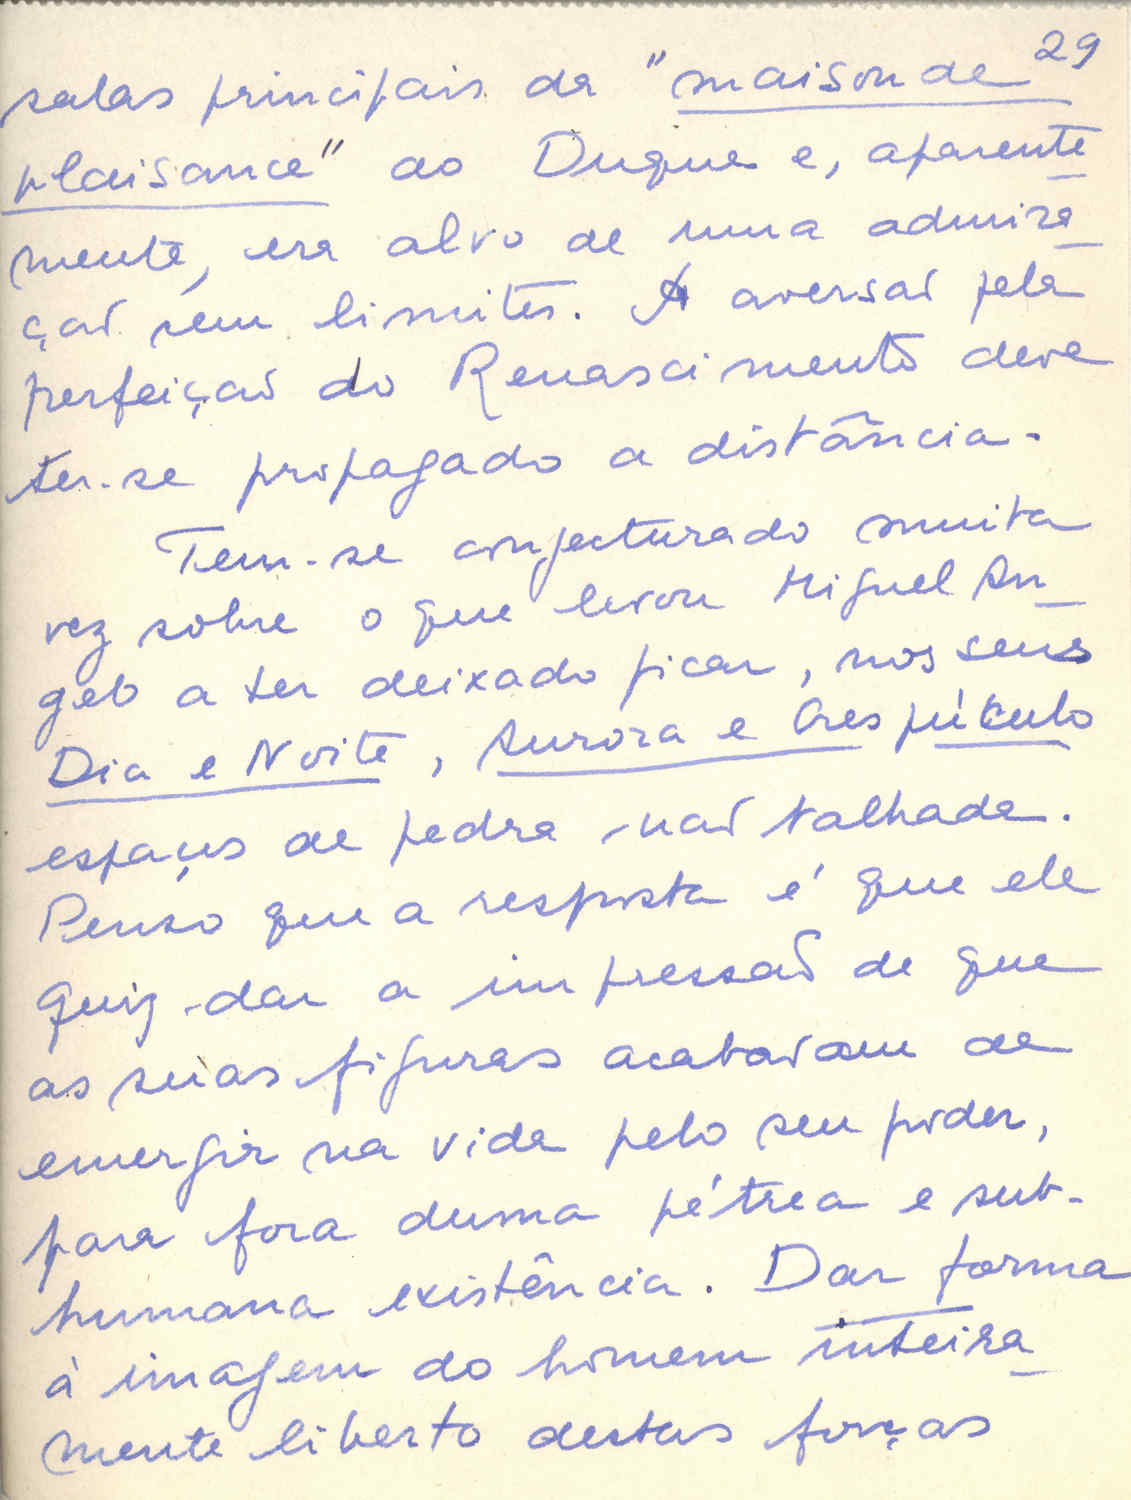 29
salas principais da "maison de
plaisance" do Duque e, aparente_
mente, era alvo de uma admira_
ção sem limites. A aversão pela
perfeição do Renascimento deve
ter-se propagado a distância.
Tem-se conjecturado muita
vez sobre o que levou Miguel An_
gelo a ter deixado ficar, nos seus
Dia e Noite, Aurora e Crespúculo
espaços de pedra não talhada.
Penso que a resposta é que ele
quiz dar a impressão de que
as suas figuras acabavam de
emergir na vida pelo seu poder,
para fora duma pétrea e sub-
humana existência. Dar forma
à imagem do homem inteira_
mente liberto destas forças